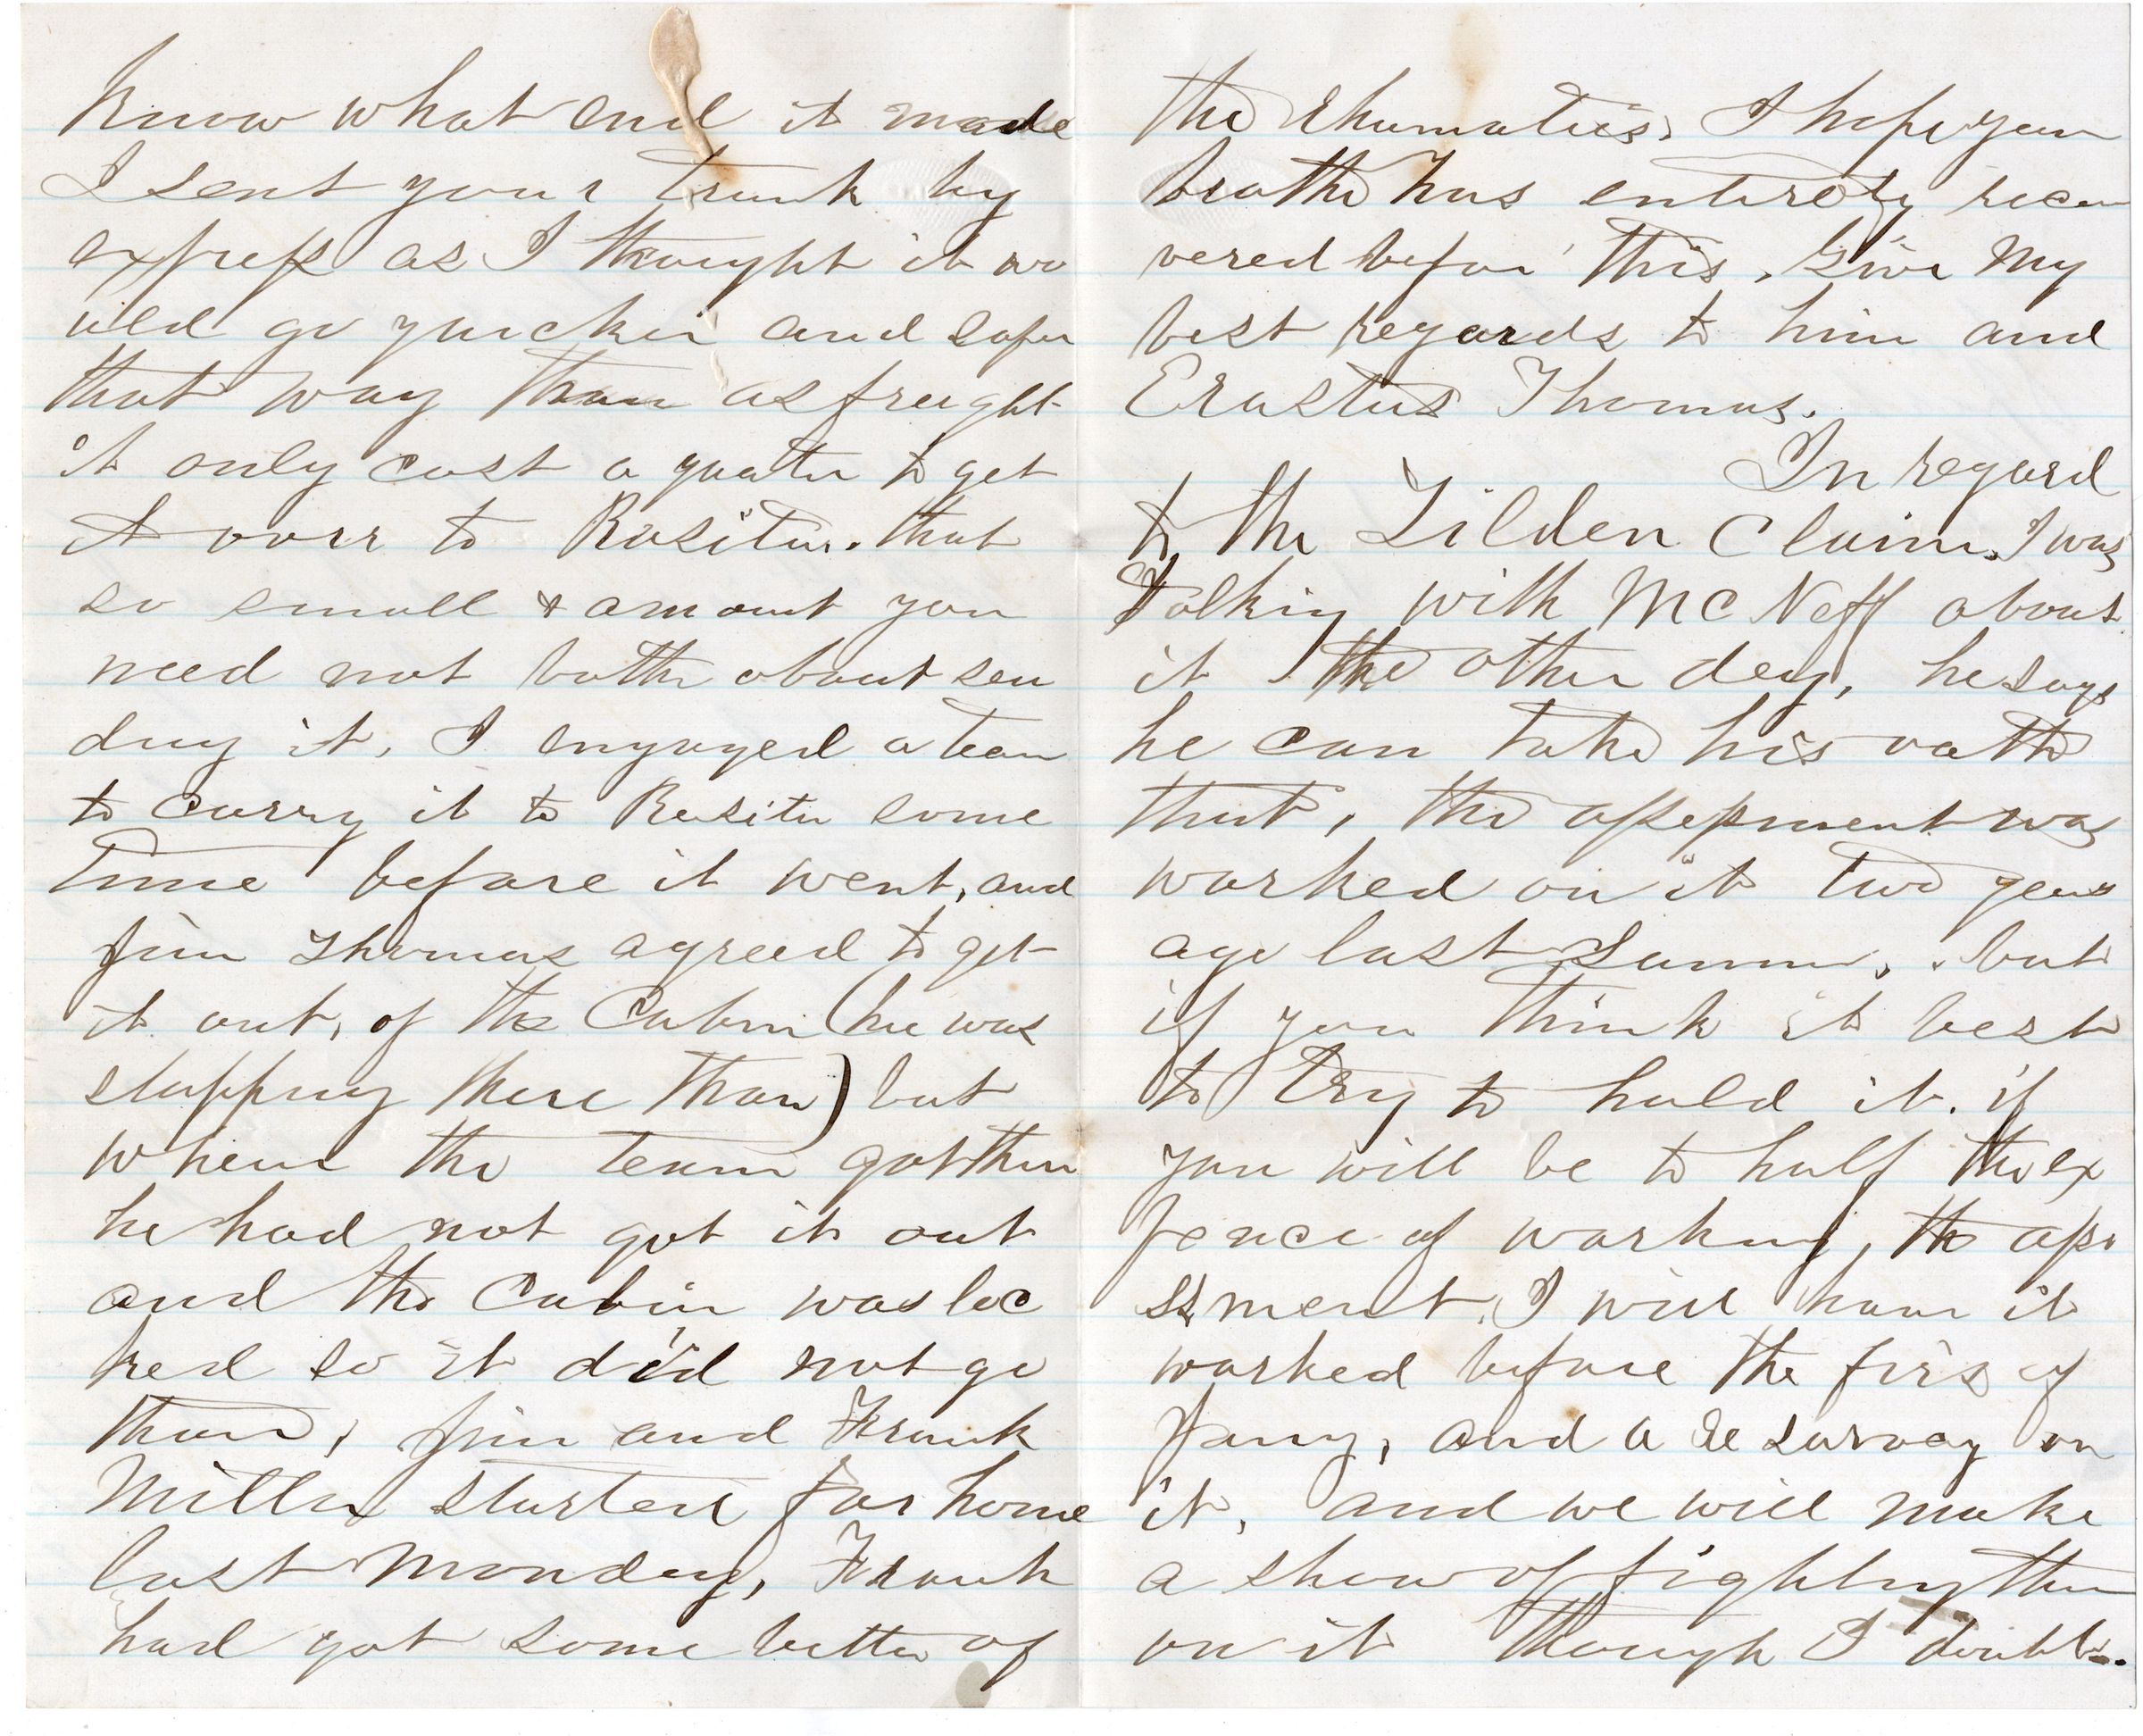 know what end it made
I sent your trunk by
express as I thought it wo
uld go quicker and safer
that way than as freight
it only cost a quater to get
it over to Rosita. that
so small a amount you
need not bother about sen
ding it, I engaged a team
to carry it to Rosita some
time before it went, and
Jim Thomas agreed to get
it out, of the Cabin (he was
stopping there than) but
when the team got there
he had not got it out
and the Cabin was loc
ked so it did not go
than, Jim and Frank
Miller started for home
last Monday, Frank
had got some better of
the rhumatics, I hope your
brother has entirely reco
vered before this, Give My
best regards to him and
Erastus Thomas.
In regard
to the Tilden Claim. I was
talking with McNeff about
it the other day, he says
he can take his oath
that, the assessment was
worked on it two years
ago last Summer, but
if you think it best
to try to hold it. if
you will be to half the ex
pence of working, the asse
ssment, I will have it
worked before the firs of
Jany, and a re survay on
it, and we will make
a show of fighting them
on it though I doubt.